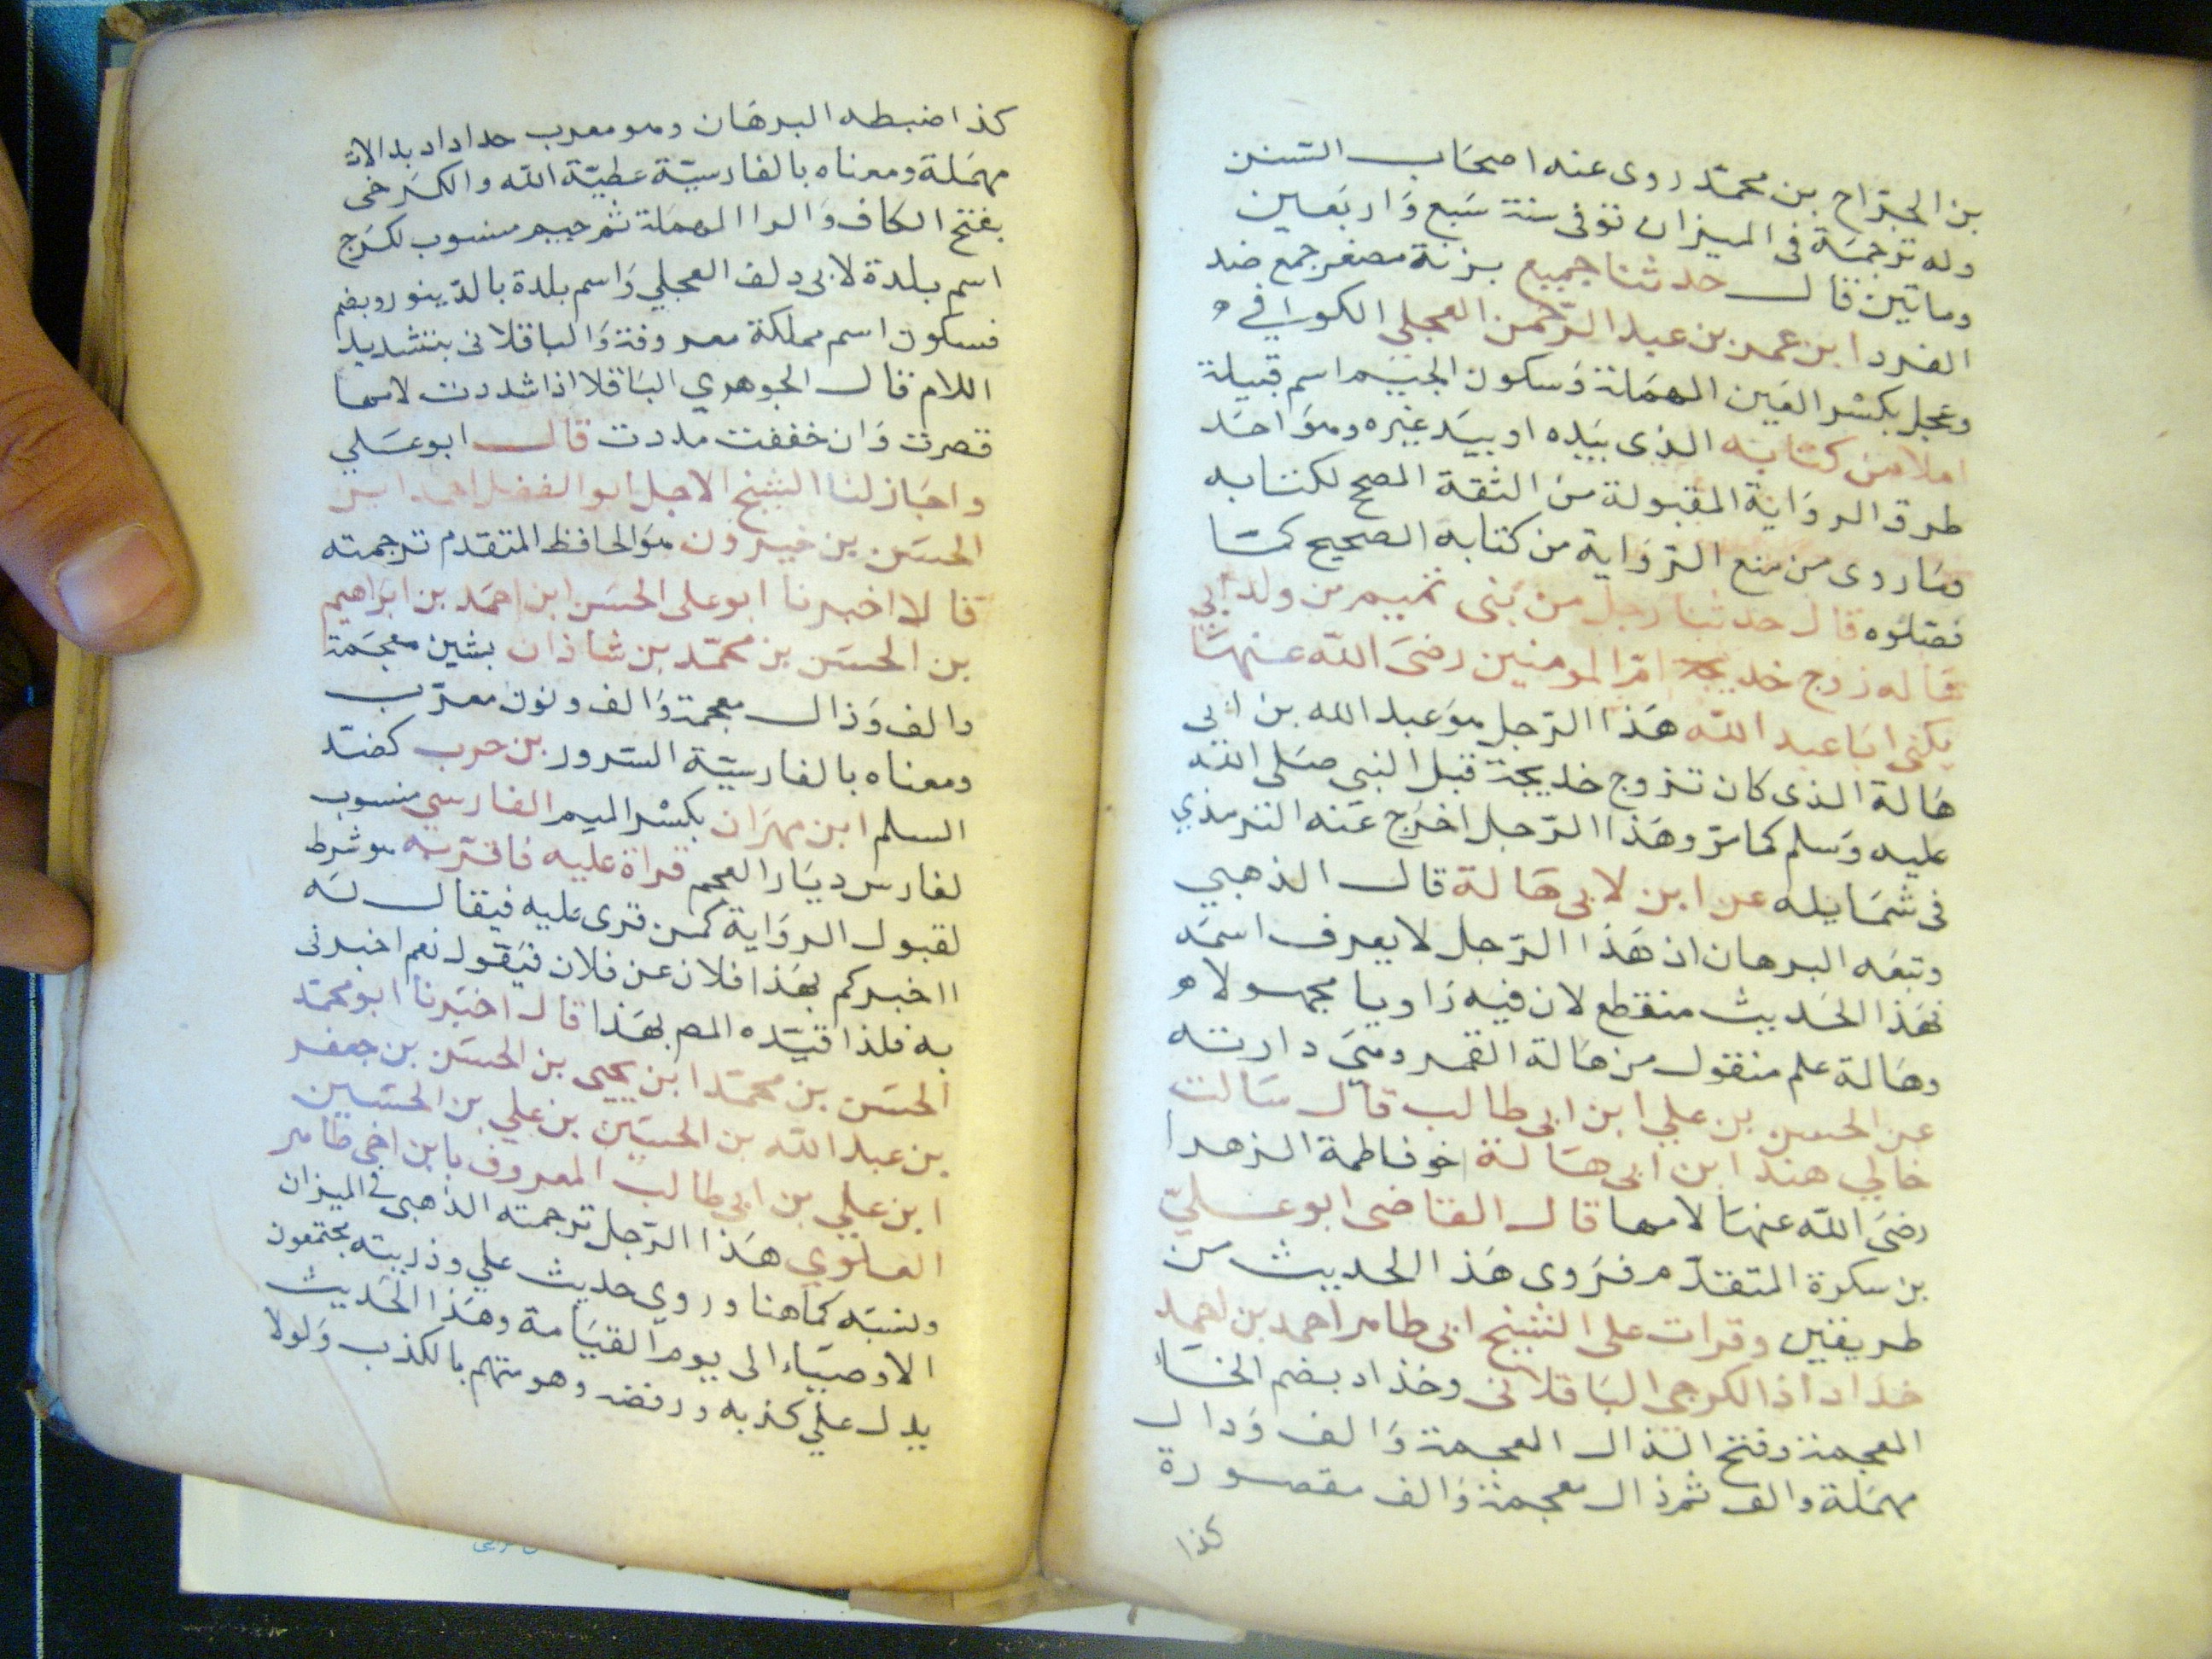 بن الجرّاح بن محمّد روى عنه اصحاب السّنن
وله ترجمة فى الميزان توفى سنة سَبع وَاربَعين
وماتين قال حدثنا جميع بزنة مصغر جمع ضد
الفرد ابن عمر بن عبد الرّحمن العجلى الكوفي
وعجل بكسْر العَين المهمَلة وَسكون الجيم اسم قبيلة
املا من كتابه الذى بيَده او بيَد غيره وهوَ احَد
طرق الروَاية المقبولة من الثقة المصحح لكتابه
وما روى من منع الرّوَاية من كتابه الصحيح كما
فصّلوه قال حدثنا رجل من بَنى تميم من ولد ابي
هَالة زوج خديجة امّ المومنين رضىَ الله عنهَا
يكنى ابَا عبد الله هَذا الرّجل هوَ عبد الله بن ابى
هَالة الذى كان تزوج خديجة قبل النبي صَلى الله
عليه وَسلم كما مرّ وهَذا الرّجل اخرَج عَنه الترمذي
فى شمَايله عن ابن لابى هَالة قال الذهبي
وتبعَه البرهان ان هَذا الرّجل لا يعرف اسمَه
فهَذا الحَديث منقطع لان فيه رَاويا مجهولا
وهَالة علم منقول من هَالة القمر وهيَ دارته
عن الحسن بن علي ابن ابى طالب قال سَالت
خالي هند ابن ابى هَالة اخو فاطمة الزهرا
رضىَ الله عنهَا لامها قال القاضى ابو عَليّ
بن سكرة المتقدّم فرَوى هَذ الحديث من
طريقين وقرات على الشيخ ابى طاهر احمد بن احمد
خذاداذا الكرجى البَاقلانى وخذاد بضم الخَا
المعجمة وفتح الذال المعجمة وَالف وَدال
مهمَلة والف ثم ذال معجمة وَالف مقصورة
كذا
كذا ضبطه البرهَان وهو معرب حداداد بدالات
مهمَلة ومعناه بالفارسيّة عطيّة الله والكرَخى
بفتح الكاف وَالرا المهمَلة ثم جيم منسوب لكرَج
اسم بلدة لابى دلف العجلي وَاسم بلدة بالدّينور وبضم
فسكون اسم مملكة معروفة وَالباقلانى بتشديد
اللام قال الجوهري البَاقلا اذا شددت لامها
قصرت وَان خففت مددت قال ابو عَلي
واجَاز لنا الشيخ الاجل ابو الفضل احمد ابن
الحسَن بن خيرون هوَ الحافظ المتقدم ترجمته
قالا اخبرنا ابو على الحسَن ابن احمَد بن ابرَاهيم
بن الحسَن بن محمّد بن شاذان بشين معجَمة
والف وَذال معجمة وَالف ونون معرّب
ومعناه بالفارسيّة السّرور بن حرب كضدّ
السلم ابن مهرَان بكسْر الميم الفارسي منسوب
لفارس ديَار العجم قراة عليه فاقرّ به هو شرط
لقبول الروَاية كمن قرى عليه فيقال له
ااخبركم بهَذا فلان عن فلان فيَقول نعم اخبرنى
به فلذا قيّده المص بهَذا قال اخبَرنا ابو محمّد
الحسَن بن محمّد ابن يحيى بن الحسَن بن جعفر
بن عبد الله بن الحسَين بن علي بن الحسَين
ابن علي بن ابي طالب المعروف بابن اخى طاهر
العلوي هَذا الرّجل ترجمته الذهبى فى الميزان
ونسَبَه كما هنا وروي حديث علي وذريته يختمون
الاوصيَاء الى يوم القيَامة وهَذا الحَديث
يدل علي كذبه ورفضه وهو متهم بالكذب وَلولا